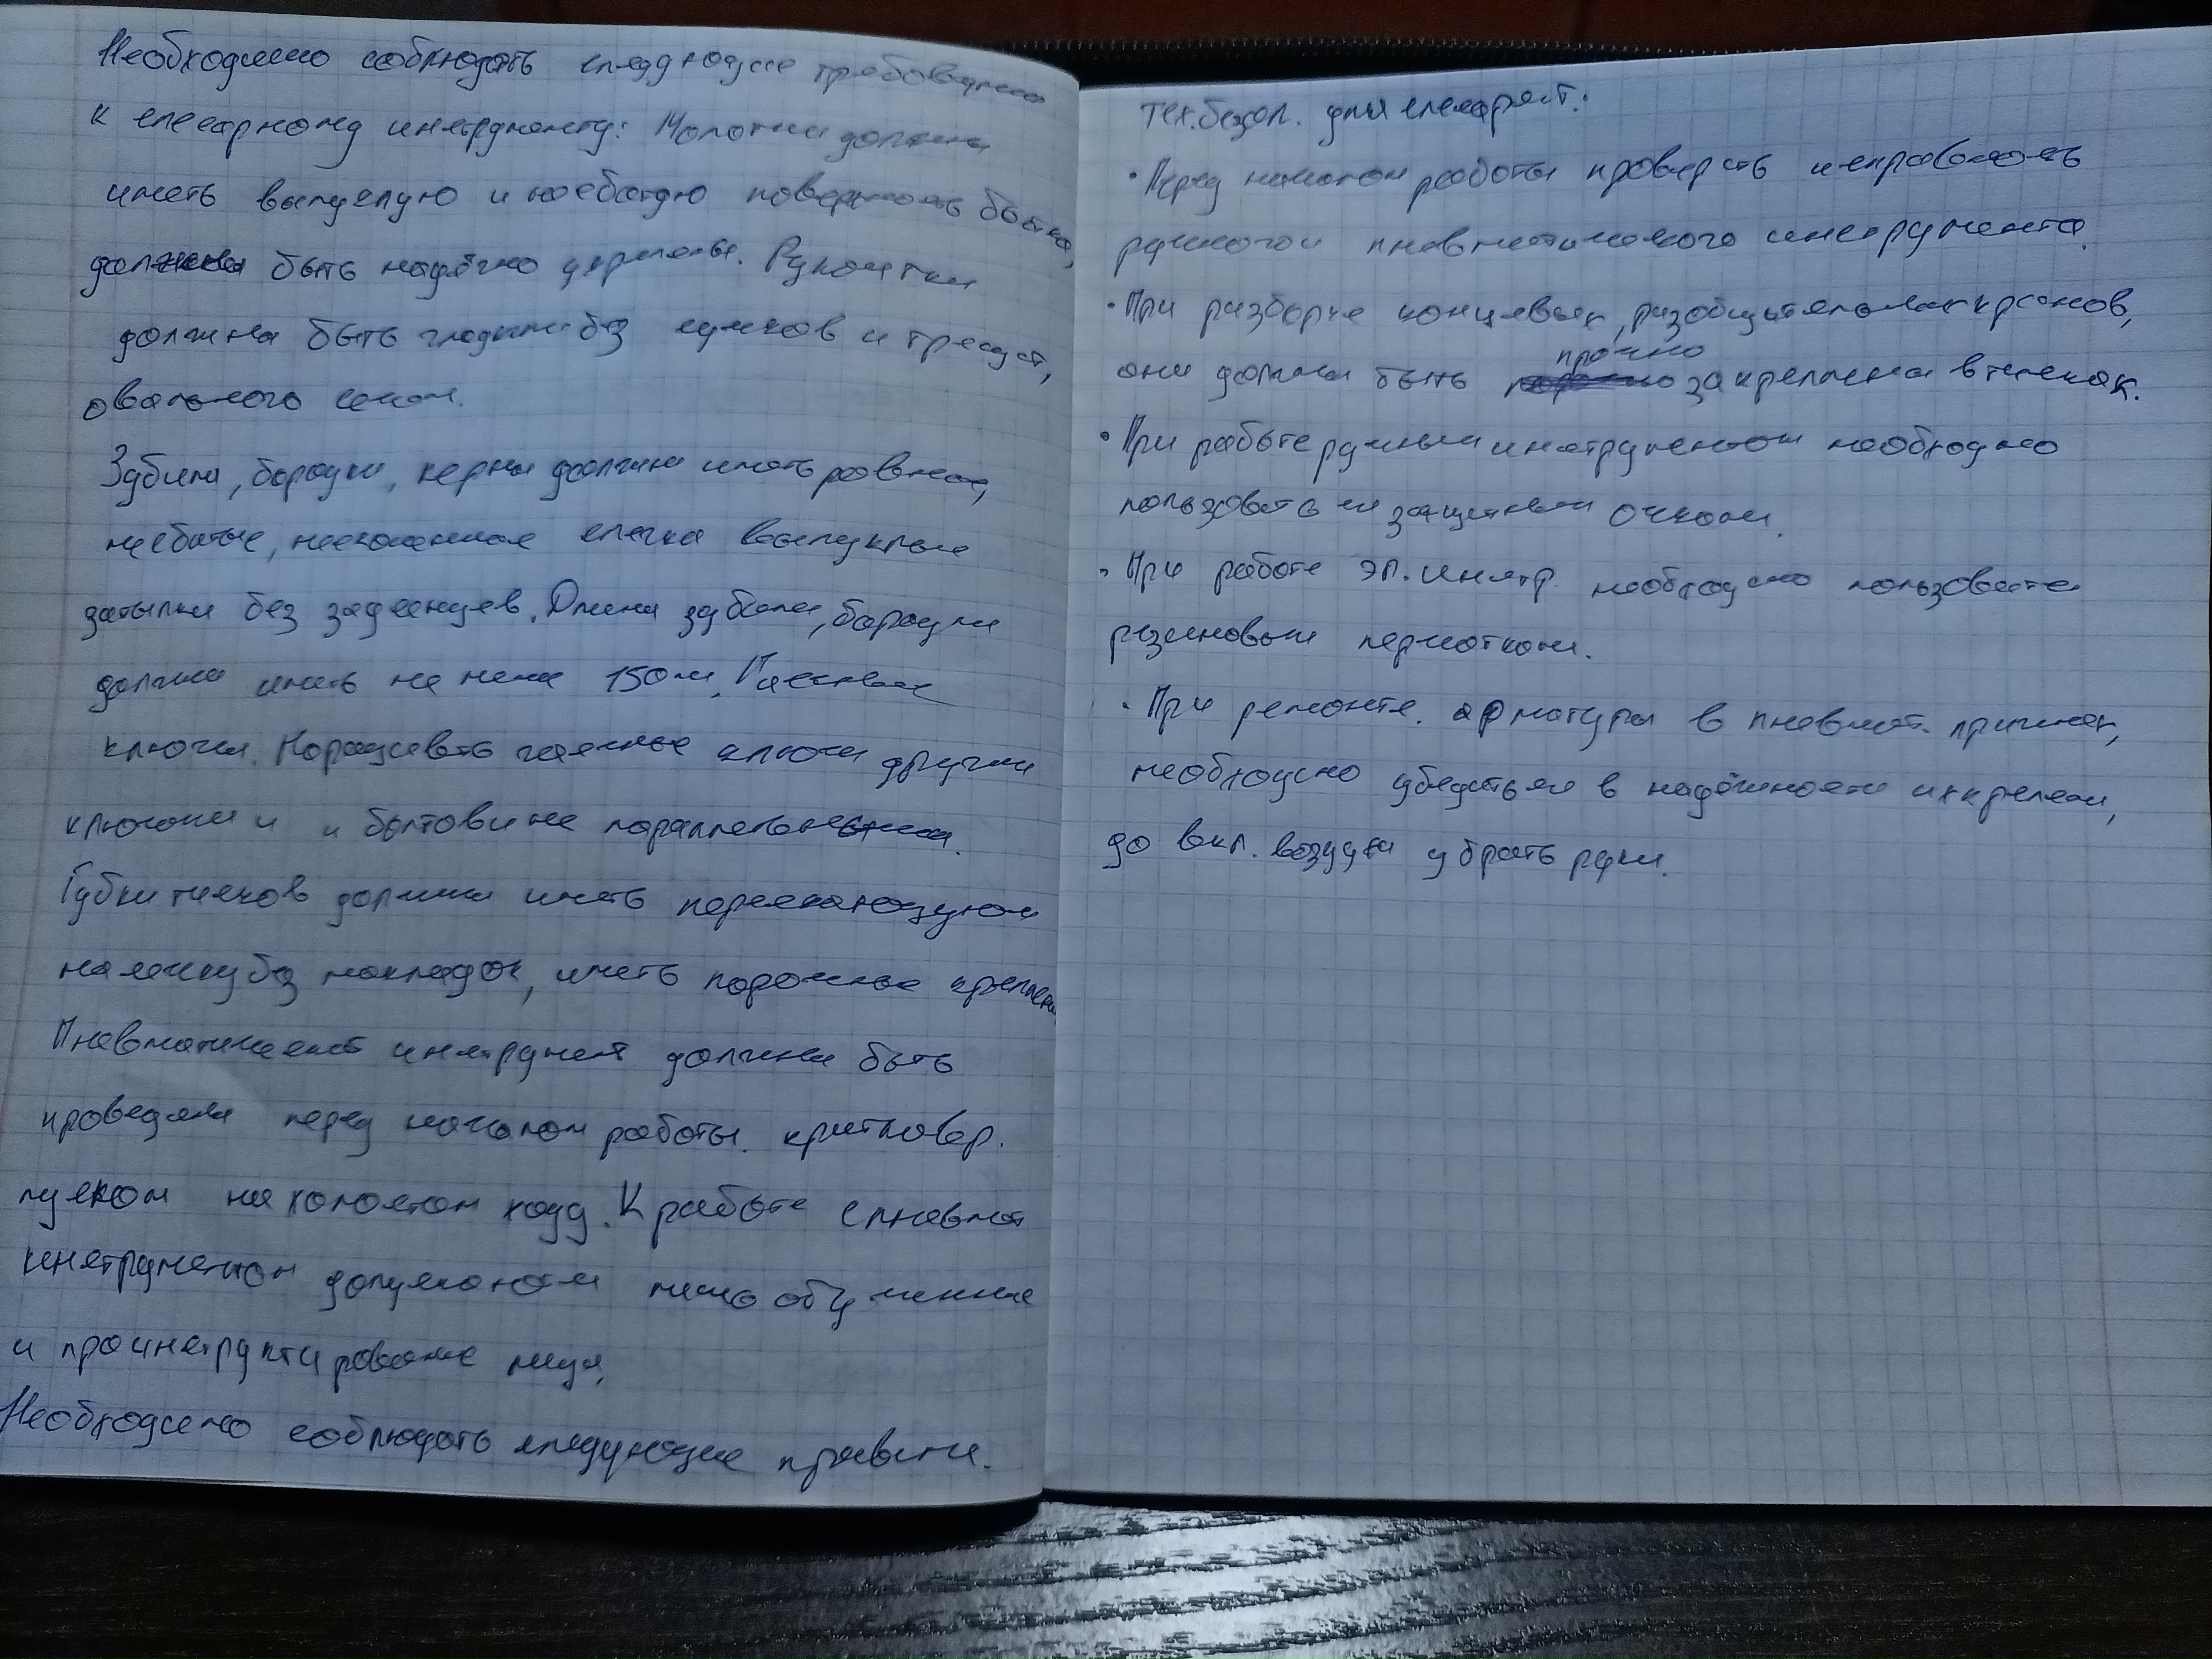 Необходимо соблюдать следующие требования
к слесарному инструменту: Молотки должны
иметь выпуклую и несбитую поверхность бойка,
должны быть надёжно укреплены. Рукоятки
должны быть гладкими без сучков и трещин,
овального сечен.
Зубила, бородки, керны должны иметь ровные,
несбитые, нескошенные слегка выпуклые
затылки без заусенцев. Длина зубила, бородки
должны иметь не менее 150мм. Гаечные
ключи. Наращивать гаечные ключи другими
ключами и
Губки тисков должны иметь
насечку без накладок, иметь
Пневматический инструмент должны быть
проведены перед началом работы. кратковр.
пуском на холостом ходу. К работе с пневмат
инструментом допускаются лишь обученные
и проинструктированные лица,
Необходимо соблюдать следующие правила.
тех.безоп. для слесарей.:
• Перед началом работы проверить исправность
ручного и пневматического инструмента.
• При разборке концевых, разобщительных кранов,
они должны быть прочно закреплены в тисках.
• При работе ручным инструментом необходимо
пользоваться защитными очками.
• При работе эл. инстр. необходимо пользоваться
резиновыми перчатками.
• При ремонте. арматуры в пневмат. прижимах,
необходимо убедиться в надёжности их креплен,
до вкл. воздуха убрать руки.